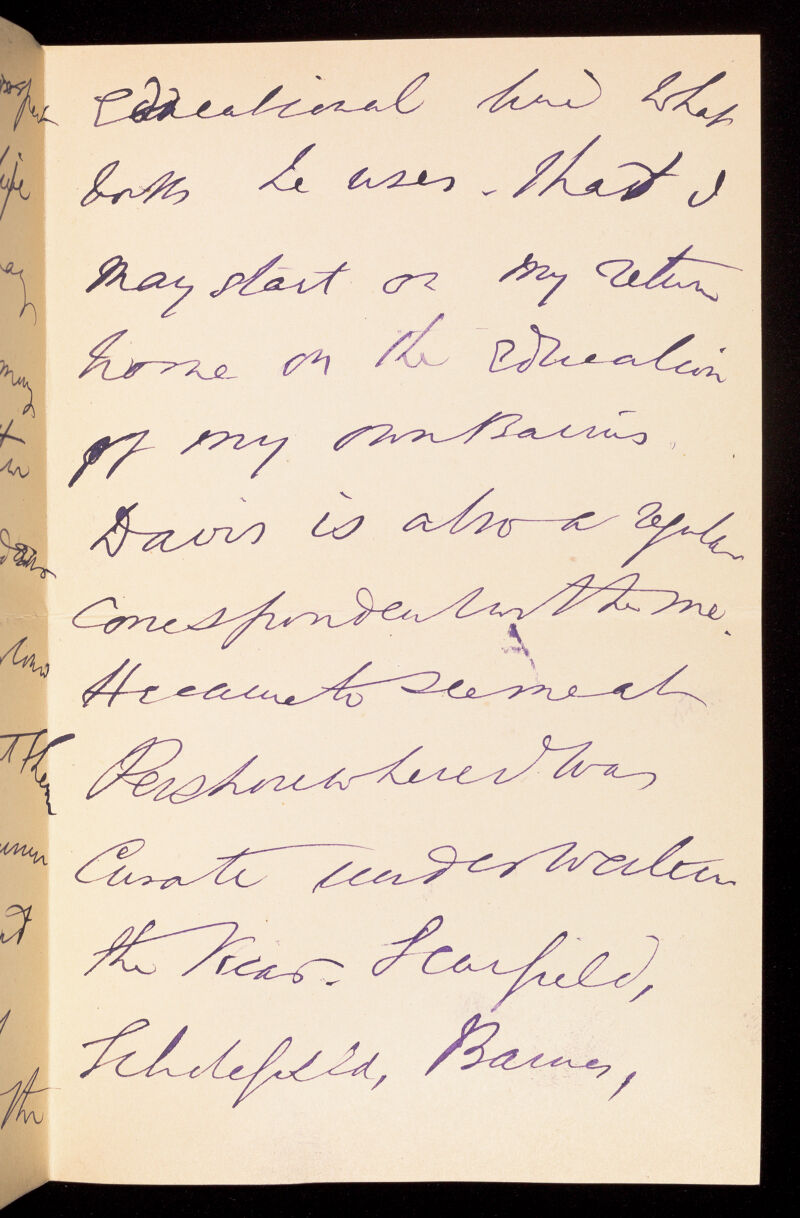 Educational line what
books he uses - that I
may start on my return
home on the Education
of my own Bairns.
Davis is also a regular
correspondent with me.
He came to see me at
Pershore where I was
Curate under Walter
the Vicar. Scarfield,
Scholefield, Barnes,